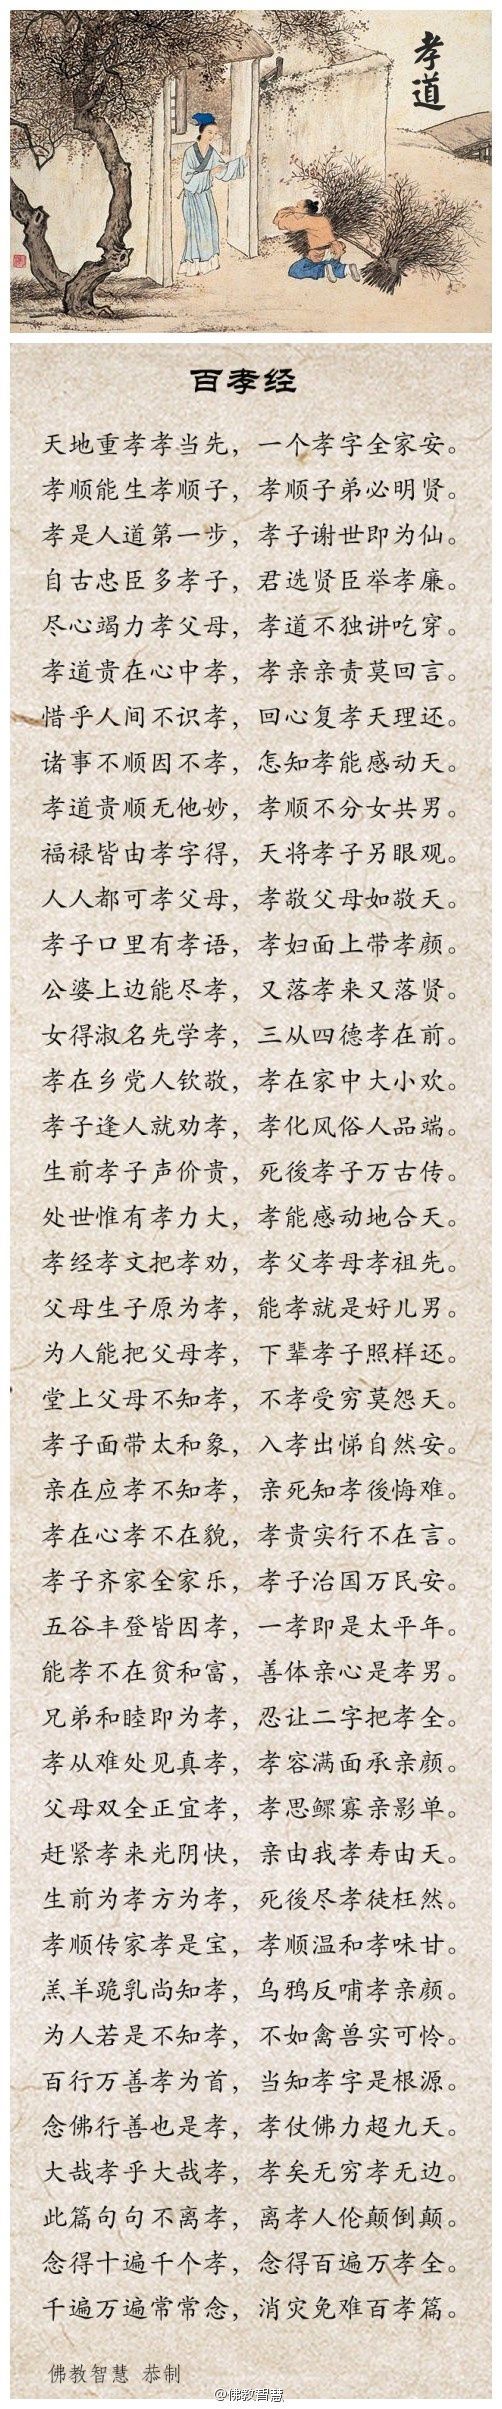 孝道
百孝经
天地重孝孝当先，一个孝字全家安。
孝顺能生孝顺子，孝顺子弟必明贤。
孝是人道第一步，孝子谢世即为仙。
自古忠臣多孝子，君选贤臣举孝廉。
尽心竭力孝父母，孝道不独讲吃穿。
孝道贵在心中孝，孝亲亲责莫回言。
惜乎人间不识孝，回心复孝天理还。
诸事不顺因不孝，怎知孝能感动天。
孝道贵顺无他妙，孝顺不分女共男。
福禄皆由孝字得，天将孝子另眼观。
人人都可孝父母，孝敬父母如敬天。
孝子口里有孝语，孝妇面上带孝颜。
公婆上边能尽孝，又落孝来又落贤。
女得淑名先学孝，三从四德孝在前。
孝在乡党人钦敬，孝在家中大小欢。
孝子逢人就劝孝，孝化风俗人品端。
生前孝子声价贵，死後孝子万古传。
处世惟有孝力大，孝能感动地合天。
孝经孝文把孝劝，孝父孝母孝祖先。
父母生子原为孝，能孝就是好儿男。
为人能把父母孝，下辈孝子照样还。
堂上父母不知孝，不孝受穷莫怨天。
孝子面带太和象，入孝出悌自然安。
亲在应孝不知孝，亲死知孝後悔难。
孝在心孝不在貌，孝贵实行不在言。
孝子齐家全家乐，孝子治国万民安。
五谷丰登皆因孝，一孝即是太平年。
能孝不在贫和富，善体亲心是孝男。
兄弟和睦即为孝，忍让二字把孝全。
孝从难处见真孝，孝容满面承亲颜。
父母双全正宜孝，孝思鳏寡亲影单。
赶紧孝来光阴快，亲由我孝寿由天。
生前为孝方为孝，死後尽孝徒枉然。
孝顺传家孝是宝，孝顺温和孝味甘。
羔羊跪乳尚知孝，乌鸦反哺孝亲颜。
为人若是不知孝，不如禽兽实可怜。
百行万善孝为首，当知孝字是根源。
念佛行善也是孝，孝仗佛力超九天。
大哉孝乎大哉孝，孝矣无穷孝无边。
此篇句句不离孝，离孝人伦颠倒颠。
念得十遍千个孝，念得百遍万孝全。
千遍万遍常常念，消灾免难百孝篇。
佛教智慧 恭制
@佛教智慧